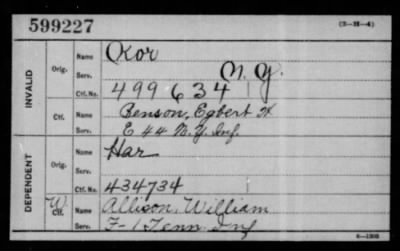 599227
(3-H-4)
INVALID
Orig.
Name Okor
Serv. N. Y.
Ctf. No. 499 634
Ctf.
Name Benson, Egbert H
Serv. E 44 N. Y. Inf.
DEPENDENT
Orig.
Name Har
Serv.
Ctf. No. 434734
W.
Ctf.
Name Allison, William
Serv. F-1 Tenn Inf